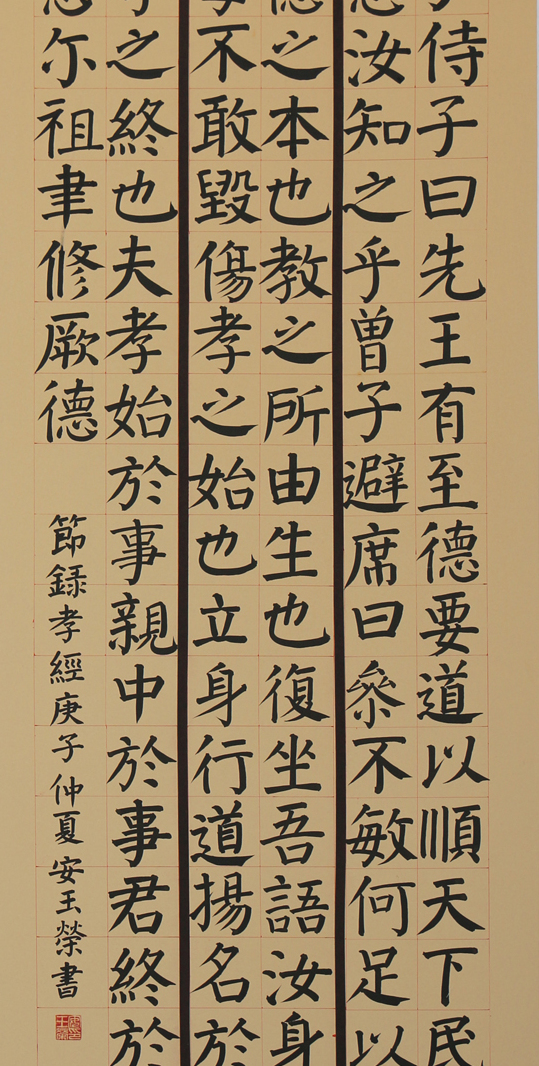 侍子曰先王有至德要道以順天下民
汝知之乎曾子避席曰叅不敏何足以
之本也教之所由生也復坐吾語汝身
不敢毀傷孝之始也立身行道揚名於
之終也夫孝始於事親中於事君終於
尔祖聿修厥德
節録孝經庚子仲夏安玉榮書